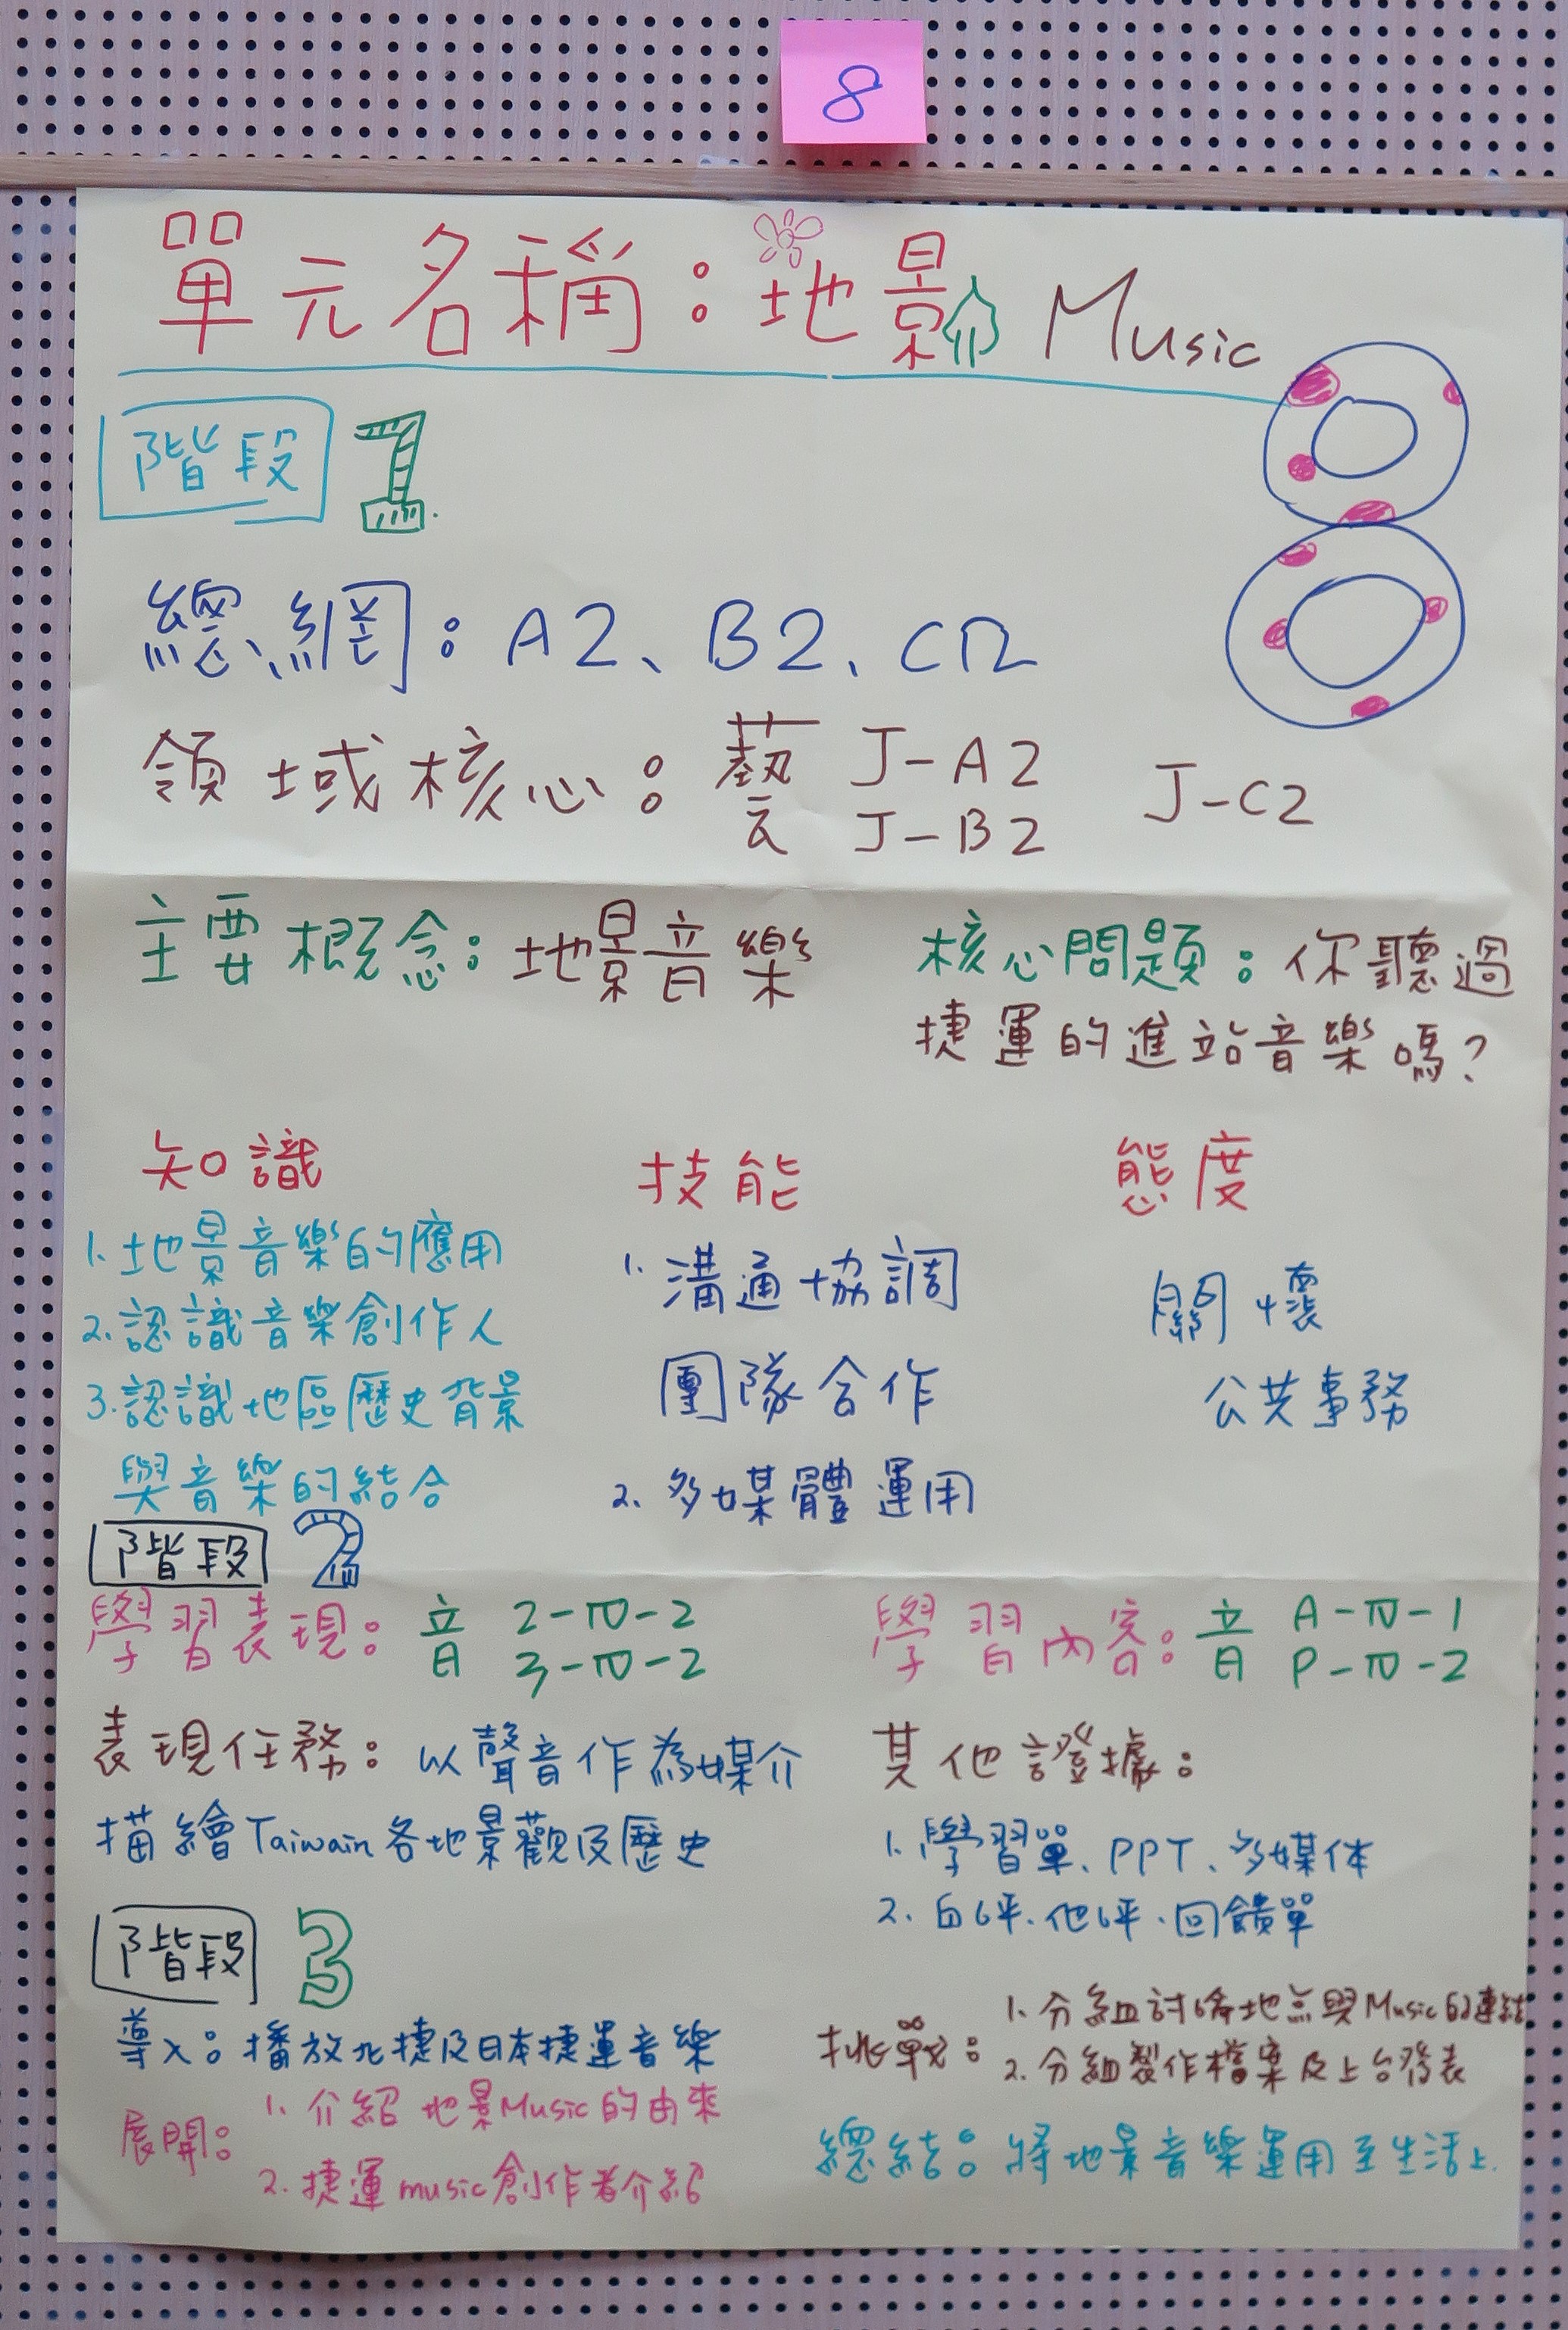 8
單元名稱：地景 Music
階段 1
8
總綱：A2、B2、C2
領域核心：藝 J-A2 J-C2
J-B2
主要概念：地景音樂
核心問題：你聽過
捷運的進站音樂嗎？
知識
1. 地景音樂的應用
2. 認識音樂創作人
3. 認識地區歷史背景
與音樂的結合
技能
1. 溝通協調
團隊合作
2. 多媒體運用
態度
關懷
公共事務
階段 2
學習表現：音 2-IV-2
3-IV-2
學習內容：音 A-IV-1
P-IV-2
表現任務：以聲音作為媒介
描繪Taiwain各地景觀及歷史
其他證據：
1. 學習單、PPT、多媒体
2. 自評、他評、回饋單
階段 3
導入：播放北捷及日本捷運音樂
展開：1. 介紹地景Music的由來
2. 捷運music創作者介紹
挑戰：1. 分組討論地点與Music的連結
2. 分組製作檔案及上台發表
總結：將地景音樂運用至生活上.